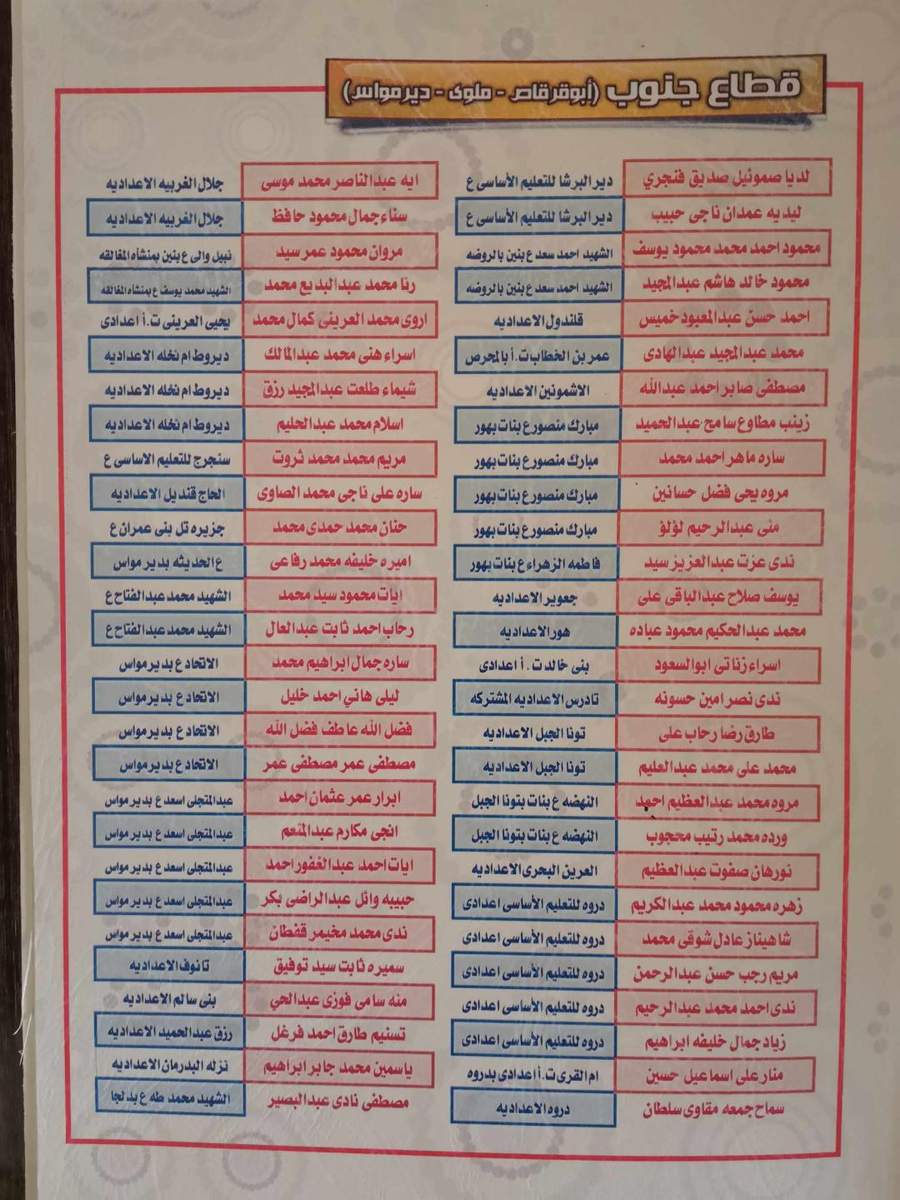 قطاع جنوب (أبوقرقاص - ملوى - ديرمواس)
لديا صموئيل صديق فنجري دير البرشا للتعليم الأساسى ع
ليديه عمدان ناجى حبيب دير البرشا للتعليم الأساسى ع
محمود احمد محمد محمود يوسف الشهيد احمد سعد ع بنين بالروضه
محمود خالد هاشم عبدالمجيد الشهيد احمد سعد ع بنين بالروضه
احمد حسن عبدالمعبود خميس قلندول الاعداديه
محمد عبدالمجيد عبدالهادى عمر بن الخطاب ت.أ بالمحرص
مصطفى صابر احمد عبدالله الاشمونين الاعداديه
زينب مطاوع سامح عبدالحميد مبارك منصور ع بنات بهور
ساره ماهر احمد محمد مبارك منصور ع بنات بهور
مروه يحى فضل حسانين مبارك منصور ع بنات بهور
منى عبدالرحيم لؤلؤ مبارك منصور ع بنات بهور
ندى عزت عبدالعزيز سيد فاطمه الزهراء ع بنات بهور
يوسف صلاح عبدالباقى على جعوير الاعداديه
محمد عبدالحكيم محمود عباده هور الاعداديه
اسراء زناتى ابوالسعود بنى خالد ت.أ اعدادى
ندى نصر امين حسونه تادرس الاعداديه المشتركه
طارق رضا رحاب على تونا الجبل الاعداديه
محمد على محمد عبدالعليم تونا الجبل الاعداديه
مروه محمد عبدالعظيم احمد النهضه ع بنات بتونا الجبل
ورده محمد رتيب محجوب النهضه ع بنات بتونا الجبل
نورهان صفوت عبدالعظيم العرين البحرى الاعداديه
زهره محمود محمد عبدالكريم دروه للتعليم الأساسى اعدادى
شاهيناز عادل شوقى محمد دروه للتعليم الأساسى اعدادى
مريم رجب حسن عبدالرحمن دروه للتعليم الأساسى اعدادى
ندى احمد محمد عبدالرحيم دروه للتعليم الأساسى اعدادى
زياد جمال خليفه ابراهيم دروه للتعليم الأساسى اعدادى
منار على اسماعيل حسين ام القرى ت.أ اعدادى بدروه
سماح جمعه مقاوى سلطان دروه الاعداديه
ايه عبدالناصر محمد موسى جلال الغربيه الاعداديه
سناء جمال محمود حافظ جلال الغربيه الاعداديه
مروان محمود عمر سيد نبيل والى ع بنين بمنشأه المغالقه
رنا محمد عبدالبديع محمد الشهيد محمد يوسف ع بمنشأه المغالقه
اروى محمد العرينى كمال محمد يحيى العرينى ت.أ اعدادى
اسراء هنى محمد عبدالمالك ديروط ام نخله الاعداديه
شيماء طلعت عبدالمجيد رزق ديروط ام نخله الاعداديه
اسلام محمد عبدالحليم ديروط ام نخله الاعداديه
مريم محمد محمد ثروت سنجرج للتعليم الاساسى ع
ساره على ناجى محمد الصاوى الحاج قنديل الاعداديه
حنان محمد حمدى محمد جزيره تل بنى عمران ع
اميره خليفه محمد رفاعى ع الحديثه بدير مواس
ايات محمود سيد محمد الشهيد محمد عبدالفتاح ع
رحاب احمد ثابت عبدالعال الشهيد محمد عبدالفتاح ع
ساره جمال ابراهيم محمد الاتحاد ع بديرمواس
ليلى هاني احمد خليل الاتحاد ع بديرمواس
فضل الله عاطف فضل الله الاتحاد ع بديرمواس
مصطفى عمر مصطفى عمر الاتحاد ع بديرمواس
ابرار عمر عثمان احمد عبدالمتجلى اسعد ع بدير مواس
انجى مكارم عبدالمنعم عبدالمتجلى اسعد ع بدير مواس
ايات احمد عبدالغفور احمد عبدالمتجلى اسعد ع بدير مواس
حبيبه وائل عبدالراضى بكر عبدالمتجلى اسعد ع بدير مواس
ندى محمد مخيمر قفطان عبدالمتجلى اسعد ع بدير مواس
سميره ثابت سيد توفيق تانوف الاعداديه
منه سامى فوزى عبدالحي بنى سالم الاعداديه
تسنيم طارق احمد فرغل رزق عبدالحميد الاعداديه
ياسمين محمد جابر ابراهيم نزله البدرمان الاعداديه
مصطفى نادى عبدالبصير الشهيد محمد طه ع بدلجا